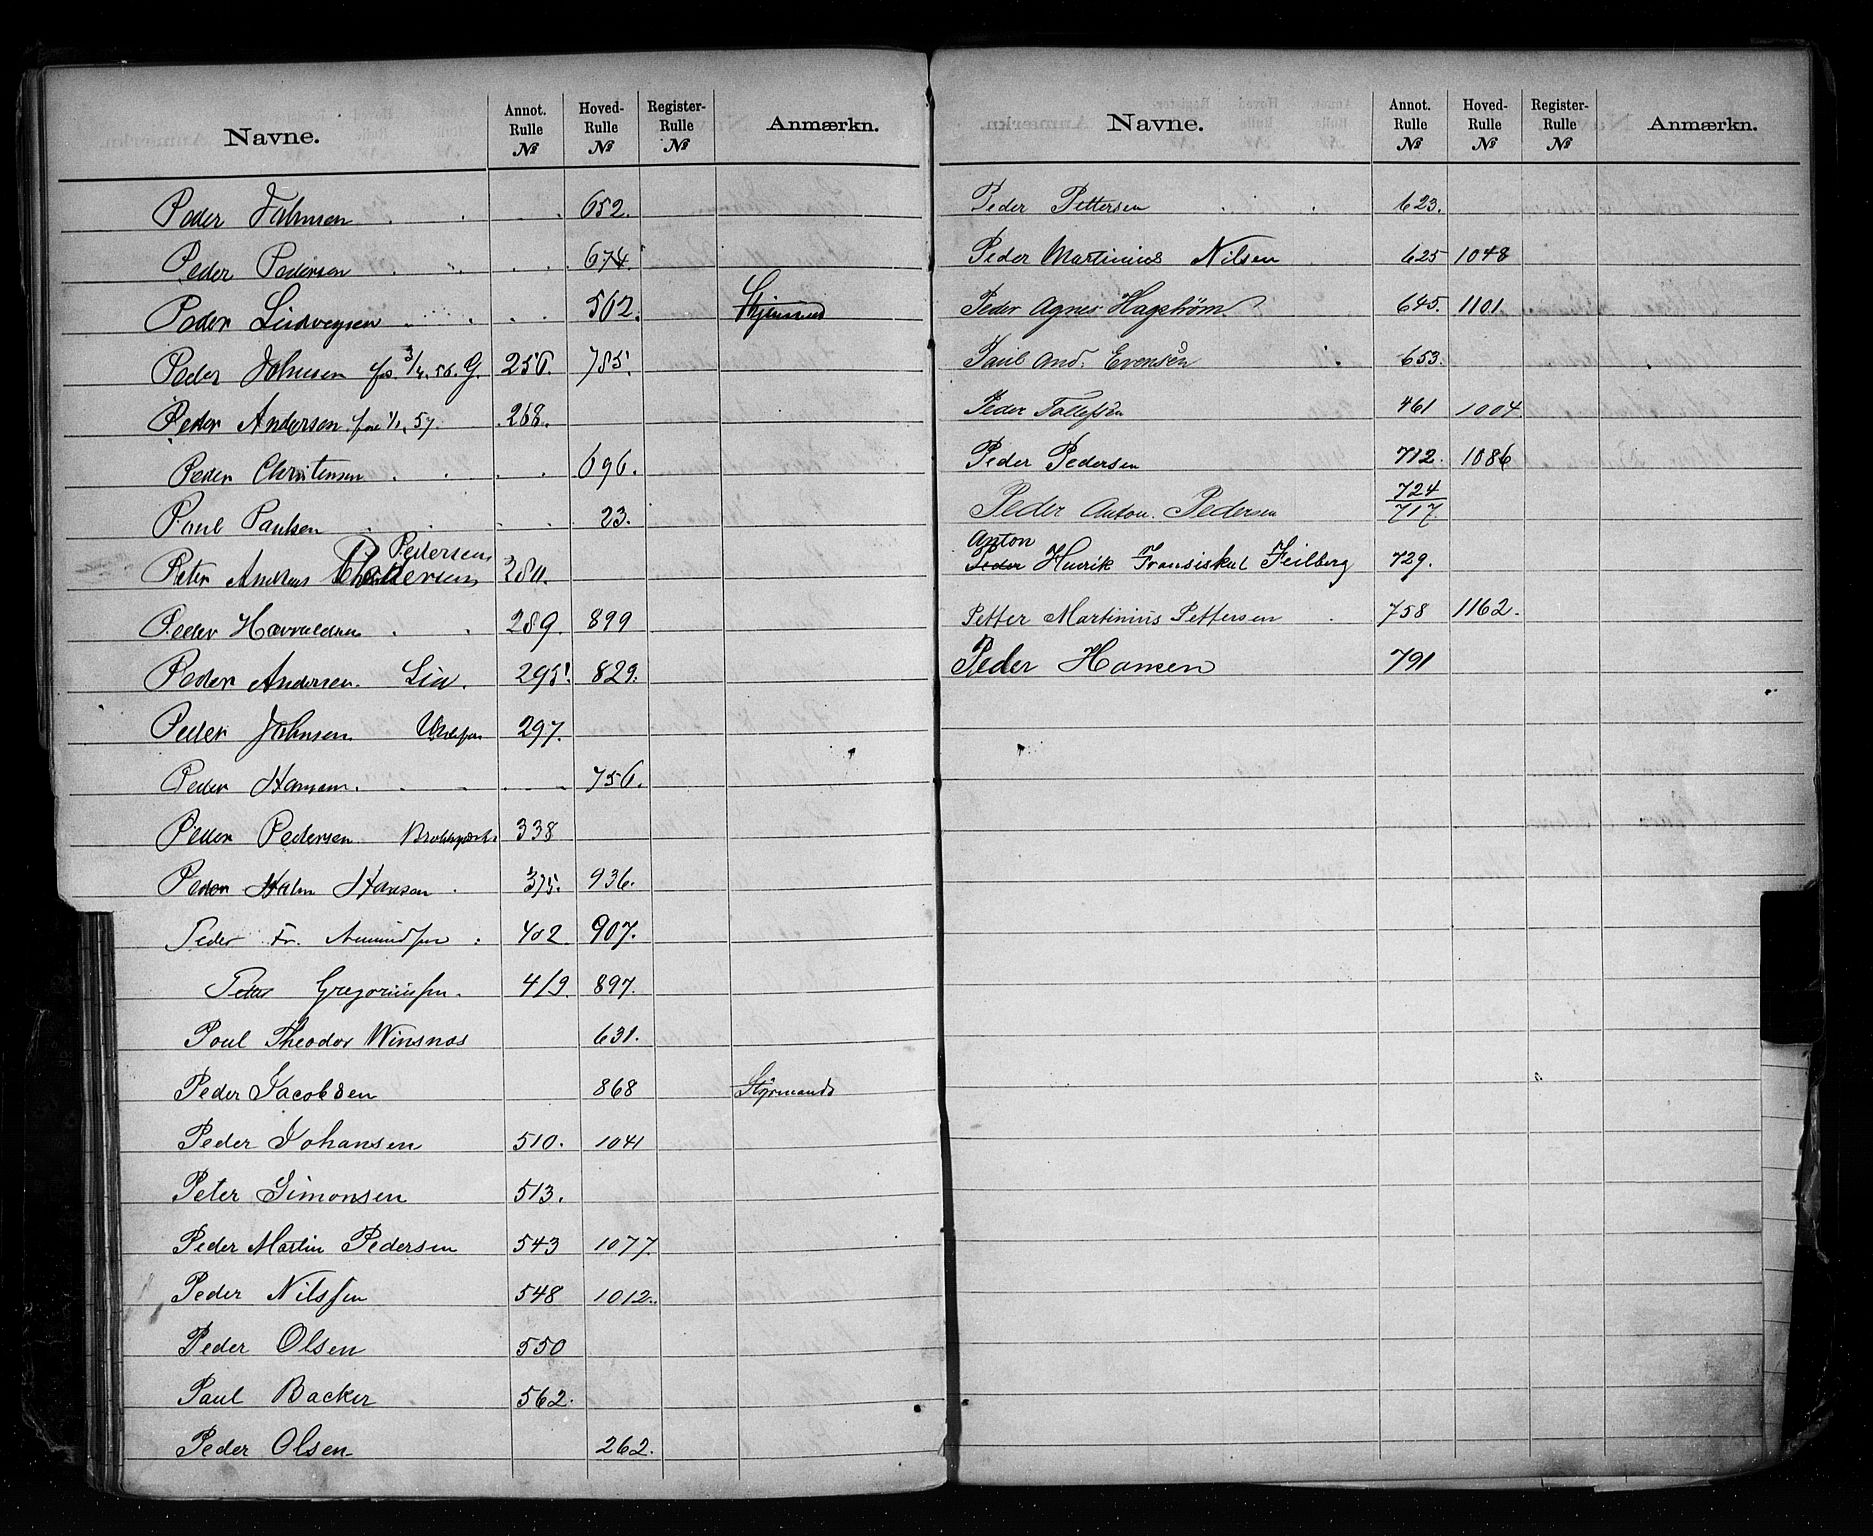 Navne. Annot. Rulle № Hoved- Rulle № Register- Rulle № Anmærkn.
Peder Johnsen 652.
Peder Pedersen 674.
Peder Ludvegsen 502.
Peder Johnsen 3/4. 56. G. 256. 785.
Peder Andersen 1/1. 57. 268.
Peder Christensen 696.
Poul Paulsen 23.
Pedersen
Peter Andreas 280.
Peder Harraldsen 289. 899
Peder Andersen Lia. 295. 829.
Peder Johnsen 297.
Peder Hansen. 756.
Peder Pedersen 338
Peder Holm Hansen 375. 936.
Peder Fr. Amundsen 402. 907.
Peder Gregoriusen. 419. 897.
Poul Theodor Winsnæs 631.
Peder Jacobsen 868 Styrmands
Peder Johansen 510. 1041
Peter Simonsen 513.
Peder Martin Pedersen 543 1077.
Peder Nilssen 548 1012.
Peder Olsen 550
Paul Backer 562.
Peder Olsen 262.
Navne. Annot. Rulle № Hoved- Rulle № Register- Rulle № Anmærkn.
Peder Pettersen 623.
Peder Martinius Nilsen 625 1048
Peder Agnes Hagstrøm 645. 1101.
Paul And. Evensen 653.
Peder Tollefsen 461 1004.
Peder Pedersen 712. 1086
724
Peder Anton. Pedersen 717
Anton
Peder Henrik Fransiskus Feilberg 729.
Petter Martinius Pettersen 758 1162.
Peder Hansen 791